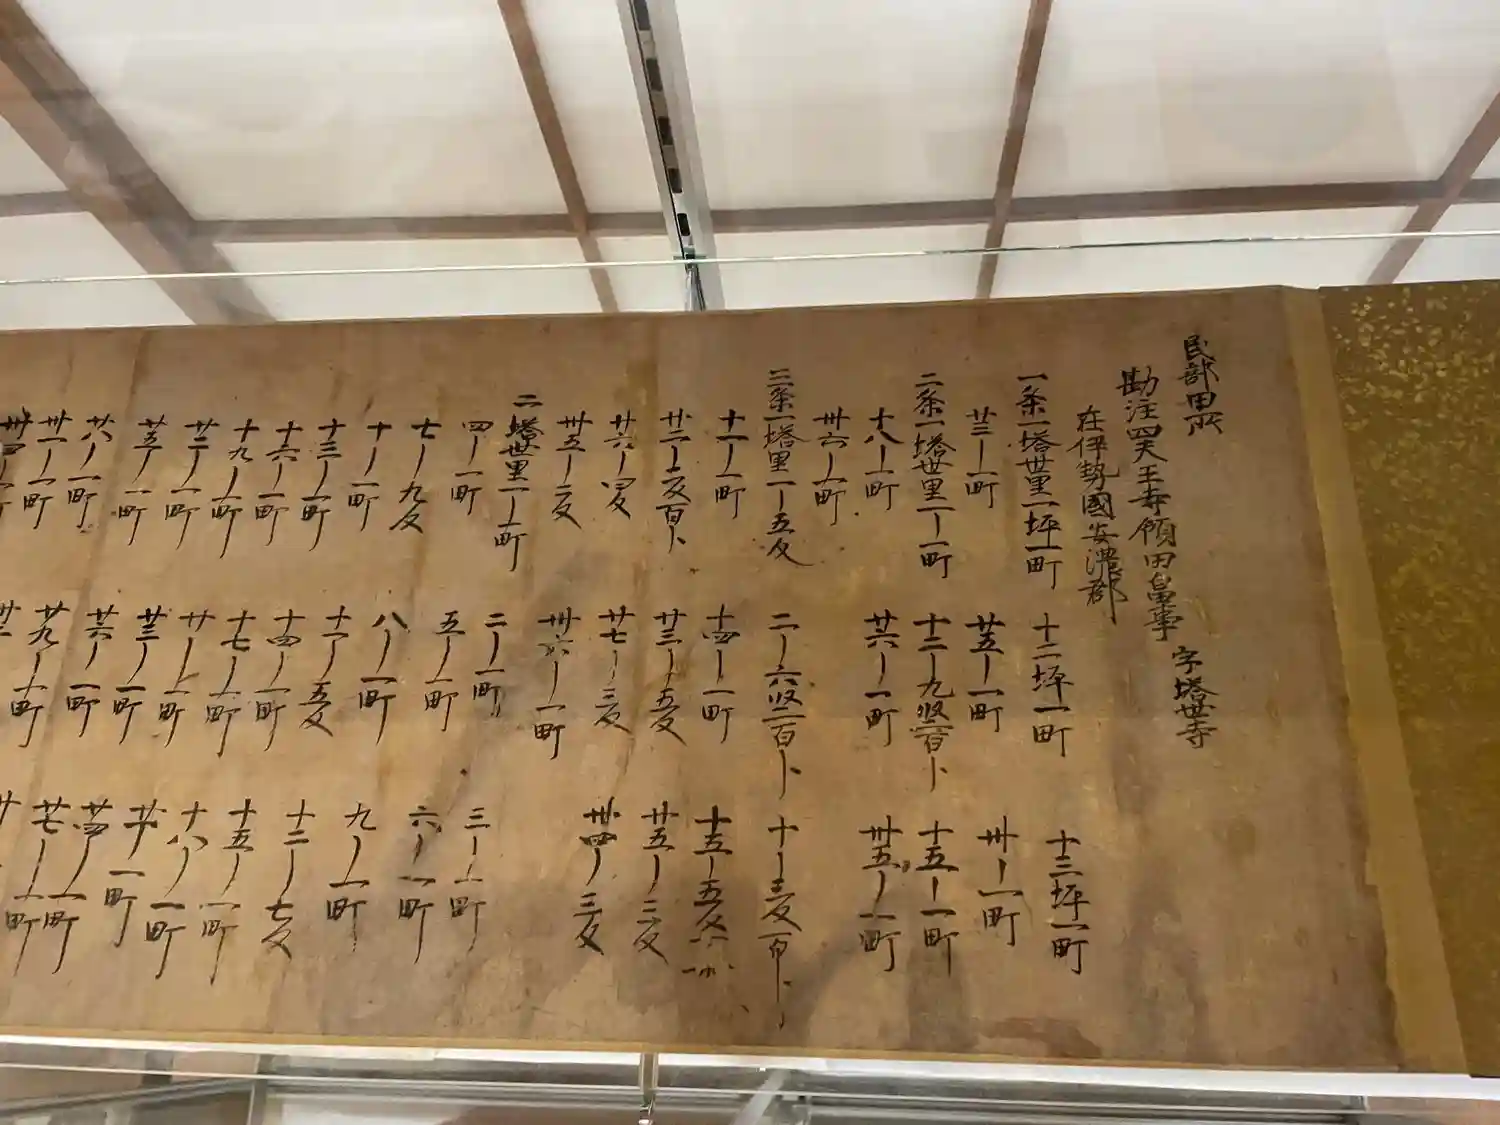 民部田所
勘注四天王寺領田畠事 字塔世寺
在伊勢國安濃郡
一条一塔世里一坪一町 十二坪一町 十三坪一町
廿三〡一町 廿五〡一町 卅〡一町
二条一塔世里一〡一町 十二〡九段二百卜 十五〡一町
十八〡一町 廿六〡一町 卅五〡一町
卅六〡一町
三条一塔里一〡五反 二〡六段二百卜 十〡三反一百卜
十一〡一町 十四〡一町 十五〡五反
廿二〡二反百卜 廿三〡五反 廿五〡二反
廿六〡四反 廿七〡三反 卅四〡三反
卅五〡二反 卅六〡一町
二塔世里一〡一町 二〡一町 三〡一町
四〡一町 五〡一町 六〡一町
七〡九反 八〡一町 九〡一町
十〡一町 十一〡五反 十二〡七反
十三〡一町 十四〡一町 十五〡一町
十六〡一町 十七〡一町 十八〡一町
十九〡一町 廿〡一町 廿一〡一町
廿二〡一町 廿三〡一町 廿四〡一町
廿五〡一町 廿六〡一町 廿七〡一町
廿八〡一町 廿九〡一町
卅一〡一町